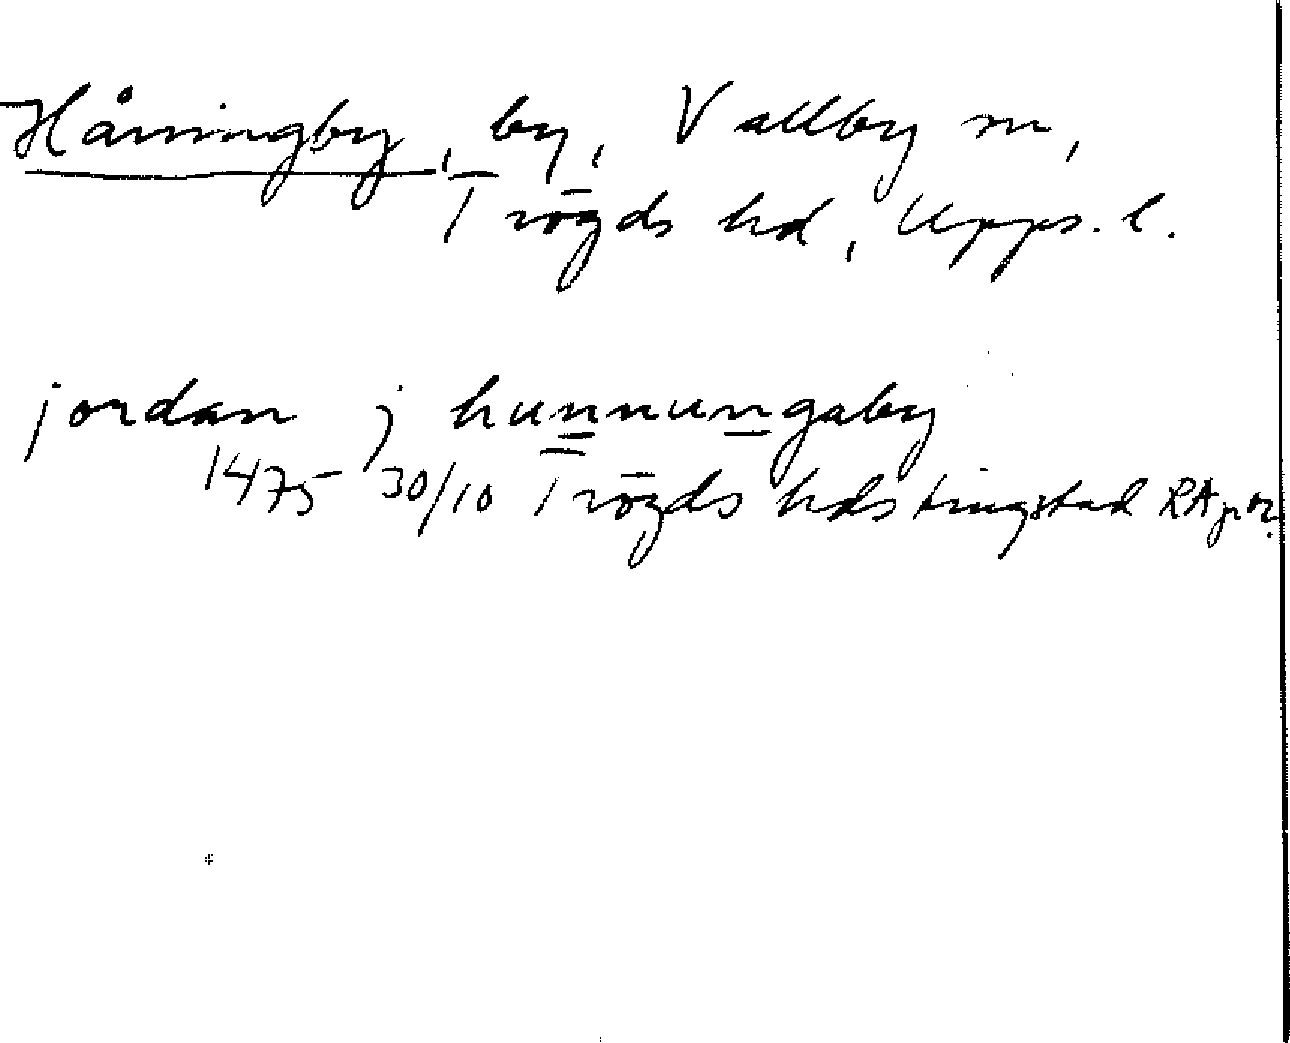 Hånningby, by, Vallby sn,
Trögds hd, Upps. l.
jordan j hunnungaby
1475 30/10 Trögds hds tingstad RAp or.